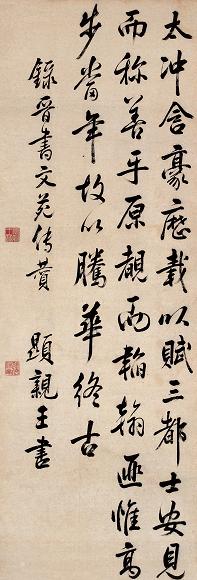 太冲含豪歷載以賦三都士安見
而称善平原覩而韜翰匪惟高
步當年故以騰華終古
録晉書文苑传賛　顯親王書